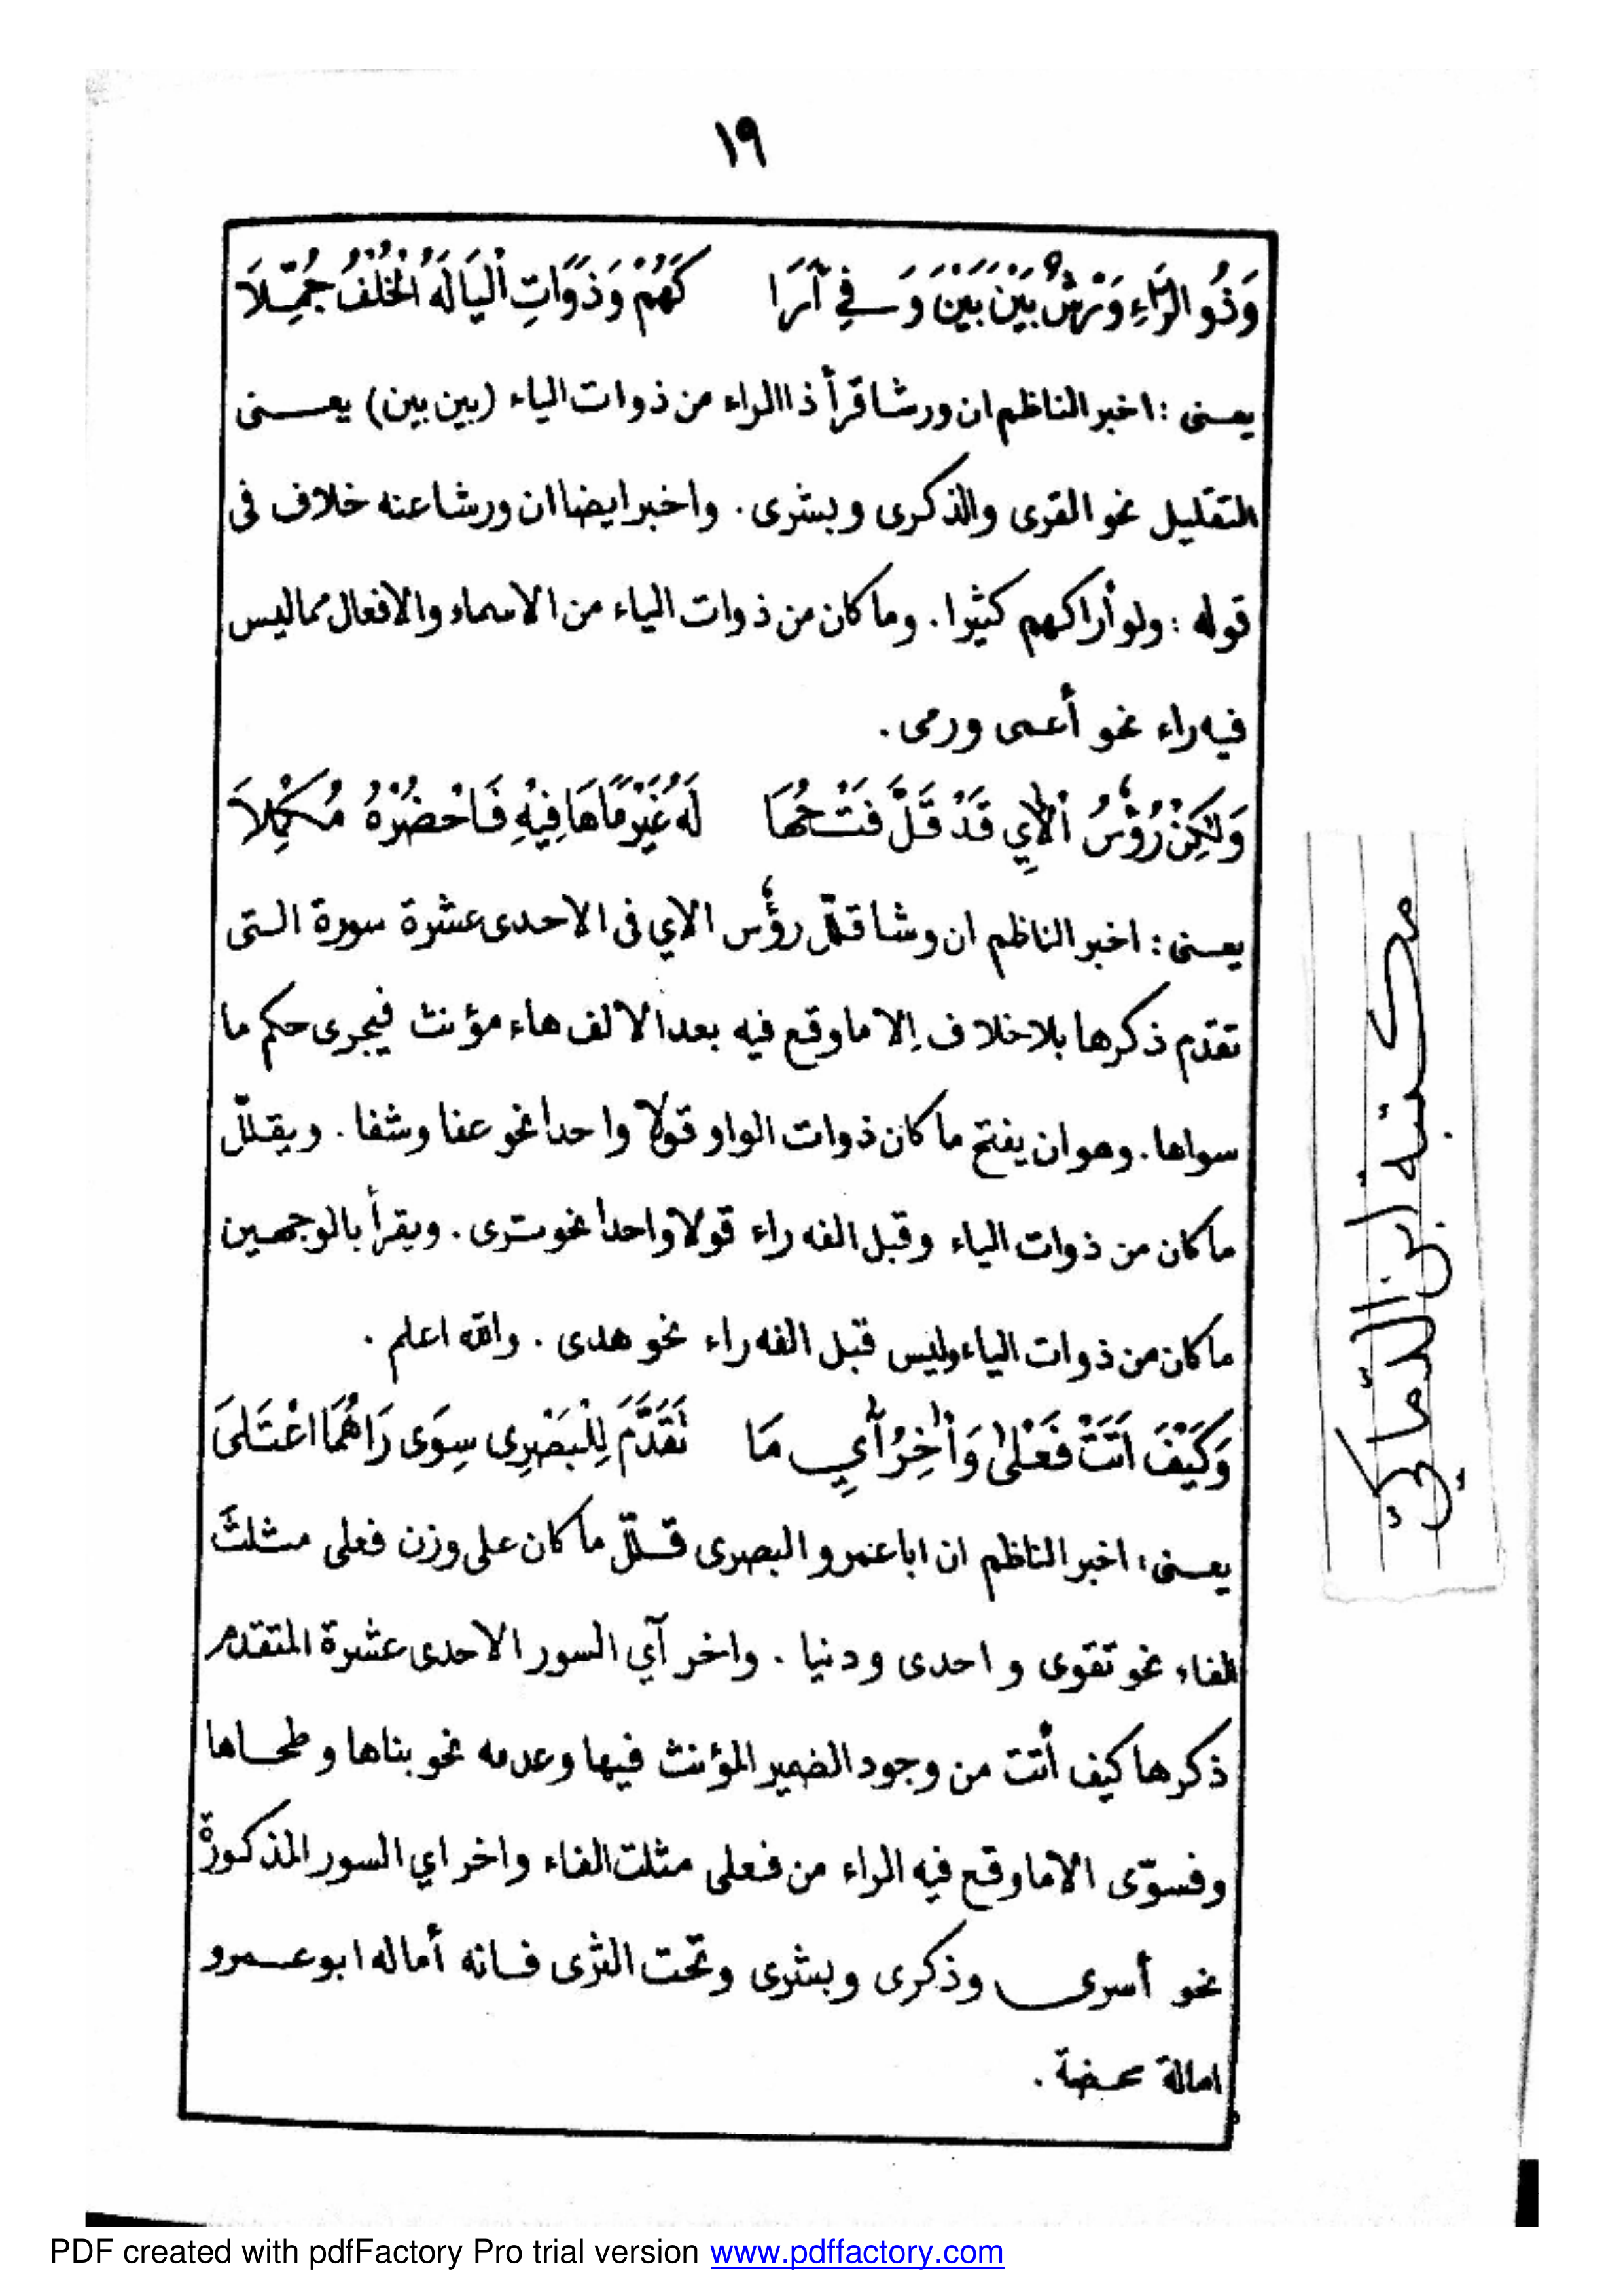 ١٩
وَذُو الرَّاءِ وَرْشٌ بَيْنَ بَيْنَ وَفِي أَرَا كَهُمْ وَذَوَاتِ الْيَا لَهُ الْخُلْفُ جُمِّلَا
يعنى : اخبر الناظم ان ورشا قرأ ذا الراء من ذوات الياء (بين بين) يعنى
التقليل نحو القرى والذكرى وبشرى . واخبر ايضا ان ورشا عنه خلاف فى
قوله : ولو أراكهم كثيرا . وما كان من ذوات الياء من الاسماء والافعال مما ليس
فيه راء نحو أعمى ورمى .
وَلٰكِنْ رُؤُسُ الْآيِ قَدْ قَلَّ فَتْحُهَا لَهُ غَيْرَ مَا هَا فِيْهِ فَاحْضُرْهُ مُكَمِّلَا
يعنى : اخبر الناظم ان وشا قلل رؤس الاي فى الاحدى عشرة سورة التى
تقدم ذكرها بلا خلاف إلا ما وقع فيه بعد الالف هاء مؤنث فيجرى حكم ما
سواها . وهو ان يفتح ما كان ذوات الواو قولا واحدا نحو عفا وشفا . ويقلل
ما كان من ذوات الياء وقبل الفه راء قولا واحدا نحو ترى . ويقرأ بالوجهين
ما كان من ذوات الياء وليس قبل الفه راء نحو هدى . والله اعلم .
وَكَيْفَ اَتَتْ فَعْلٰى وَأٰخِرُ آيِ مَا تَقَدَّمَ لِلْبَصْرِى سِوَى رَاهُمَا اعْتَلَىَ
يعنى : اخبر الناظم ان ابا عمرو البصرى قلّل ما كان على وزن فعلى مثلثَ
الفاء نحو تقوى و احدى ودنيا . واخر آي السور الاحدى عشرة المتقدم
ذكرها كيف أتت من وجود الضمير المؤنث فيها وعدمه نحو بناها و طحاها
وفسوّى الا ما وقع فيه الراء من فعلى مثلث الفاء واخر اي السور المذكورة
نحو أسرى وذكرى وبشرى وتحت الثرى فانه أماله ابو عمرو
امالة محضة .
مكتبة ابن
PDF created with pdfFactory Pro trial version www.pdffactory.com